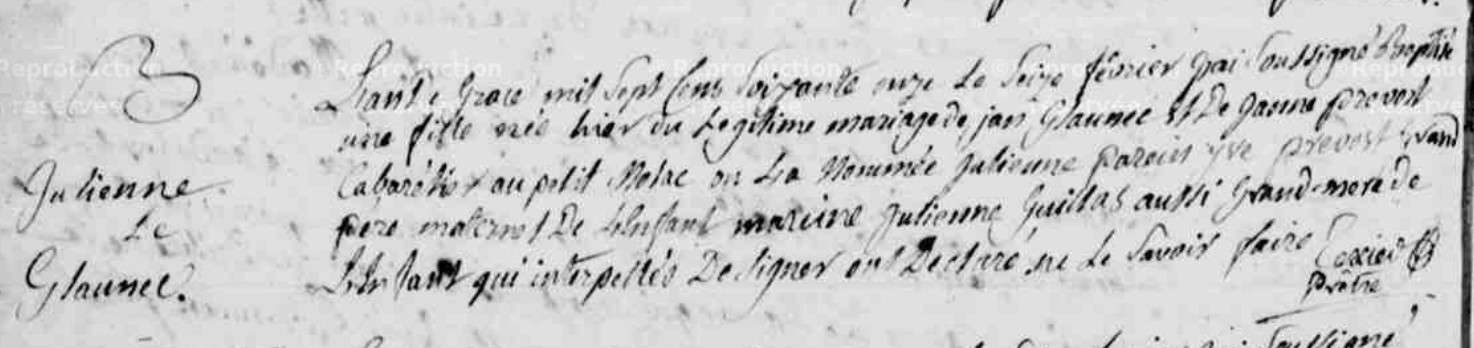 B
Julienne
Le
Glaunec.
L'an de Grace mil Sept Cens Soixante onze Le Seize février j'ai Soussigné Baptisé
une fille née hier du Legitime mariage de jan Glaunec et De jaonne prevost
Cabarétier au petit Molac on La Nommée Julienne parein yve prevost Grand
pere maternel De L'Enfant mareine Julienne Guillas aussi Grand-mere de
L'Enfant qui interpellés De signer ont Declaré ne Le Savoir faire
prêtre
Soussigné